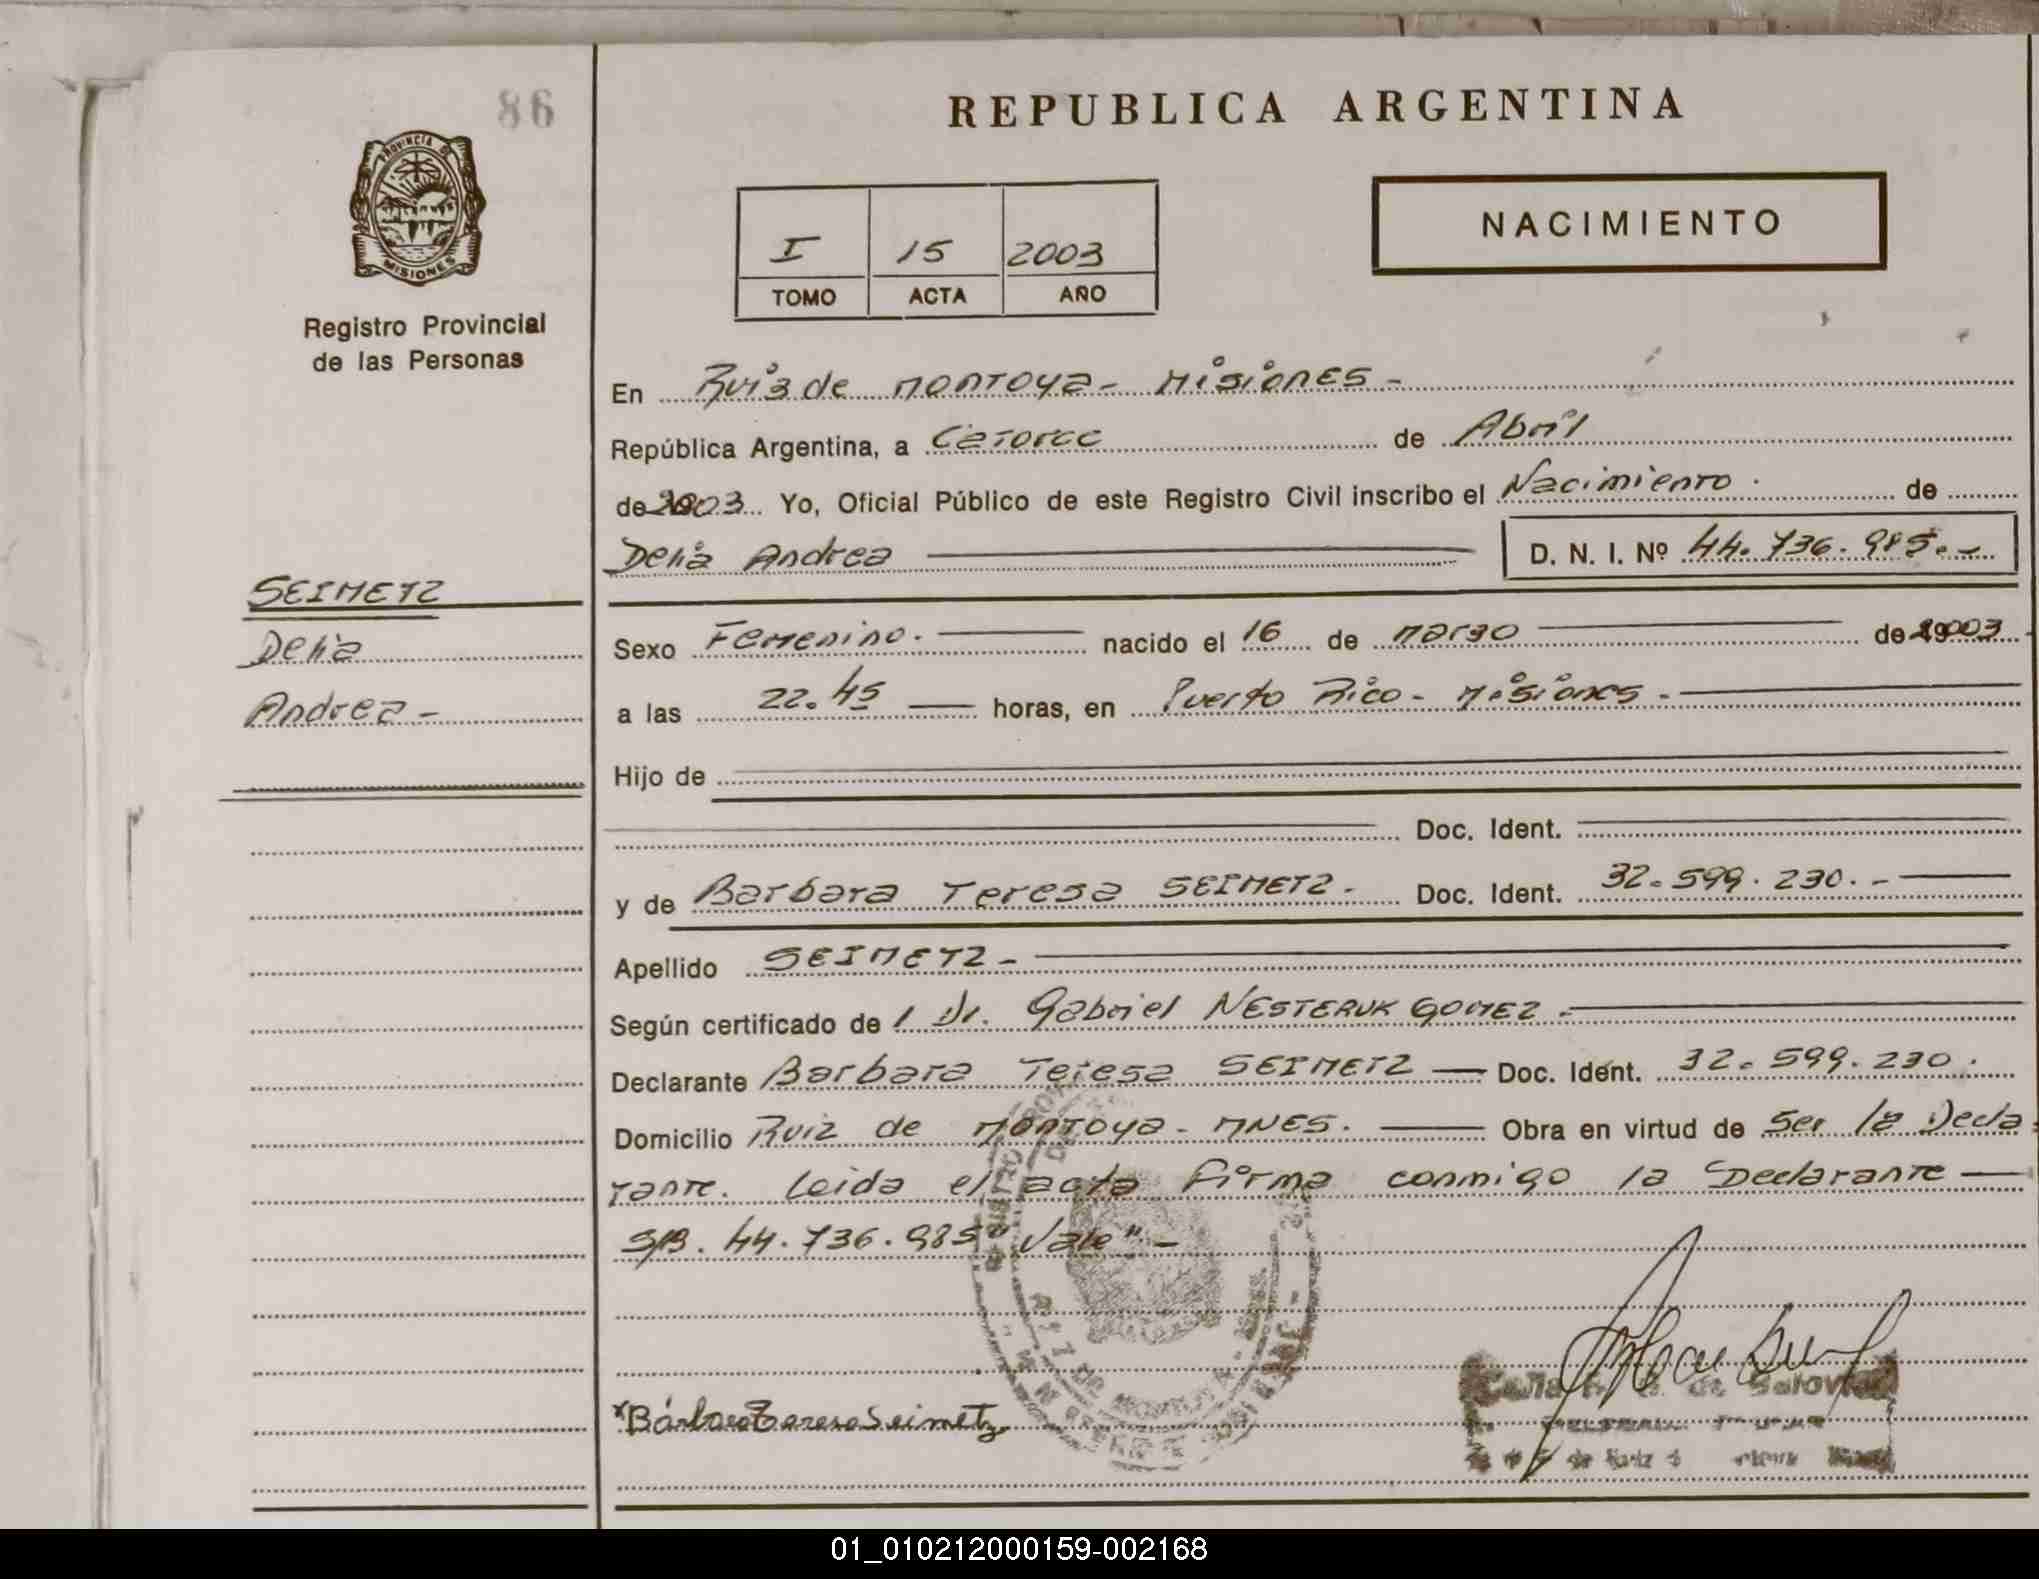 86
PROVINCIA DE
MISIONES
Registro Provincial
de las Personas
REPUBLICA ARGENTINA
I 15 2003
TOMO ACTA AÑO
NACIMIENTO
En Ruiz de Montoya - Misiones -
República Argentina, a Catorce de Abril
de 2003 Yo, Oficial Público de este Registro Civil inscribo el Nacimiento. de
Delia Andrea D. N. I. Nº 44.736.985.-
SEIMETZ
Delia
Andrea -
Sexo Femenino. nacido el 16 de marzo de 2003
a las 22.45 horas, en Puerto Rico - Misiones -
Hijo de
Doc. Ident.
y de Barbara Teresa SEIMETZ. Doc. Ident. 32.599.230.-
Apellido SEIMETZ -
Según certificado de / Dr. Gabriel NESTERUK GOMEZ.-
Declarante Barbara Teresa SEIMETZ — Doc. Ident. 32.599.230.
Domicilio Ruiz de Montoya - MNES. — Obra en virtud de Ser la Decla
rante. Leida el acta firma conmigo la Declarante —
S/B. 44.736.985 "Vale" -
Bárbara Teresa Seimetz
01_010212000159-002168